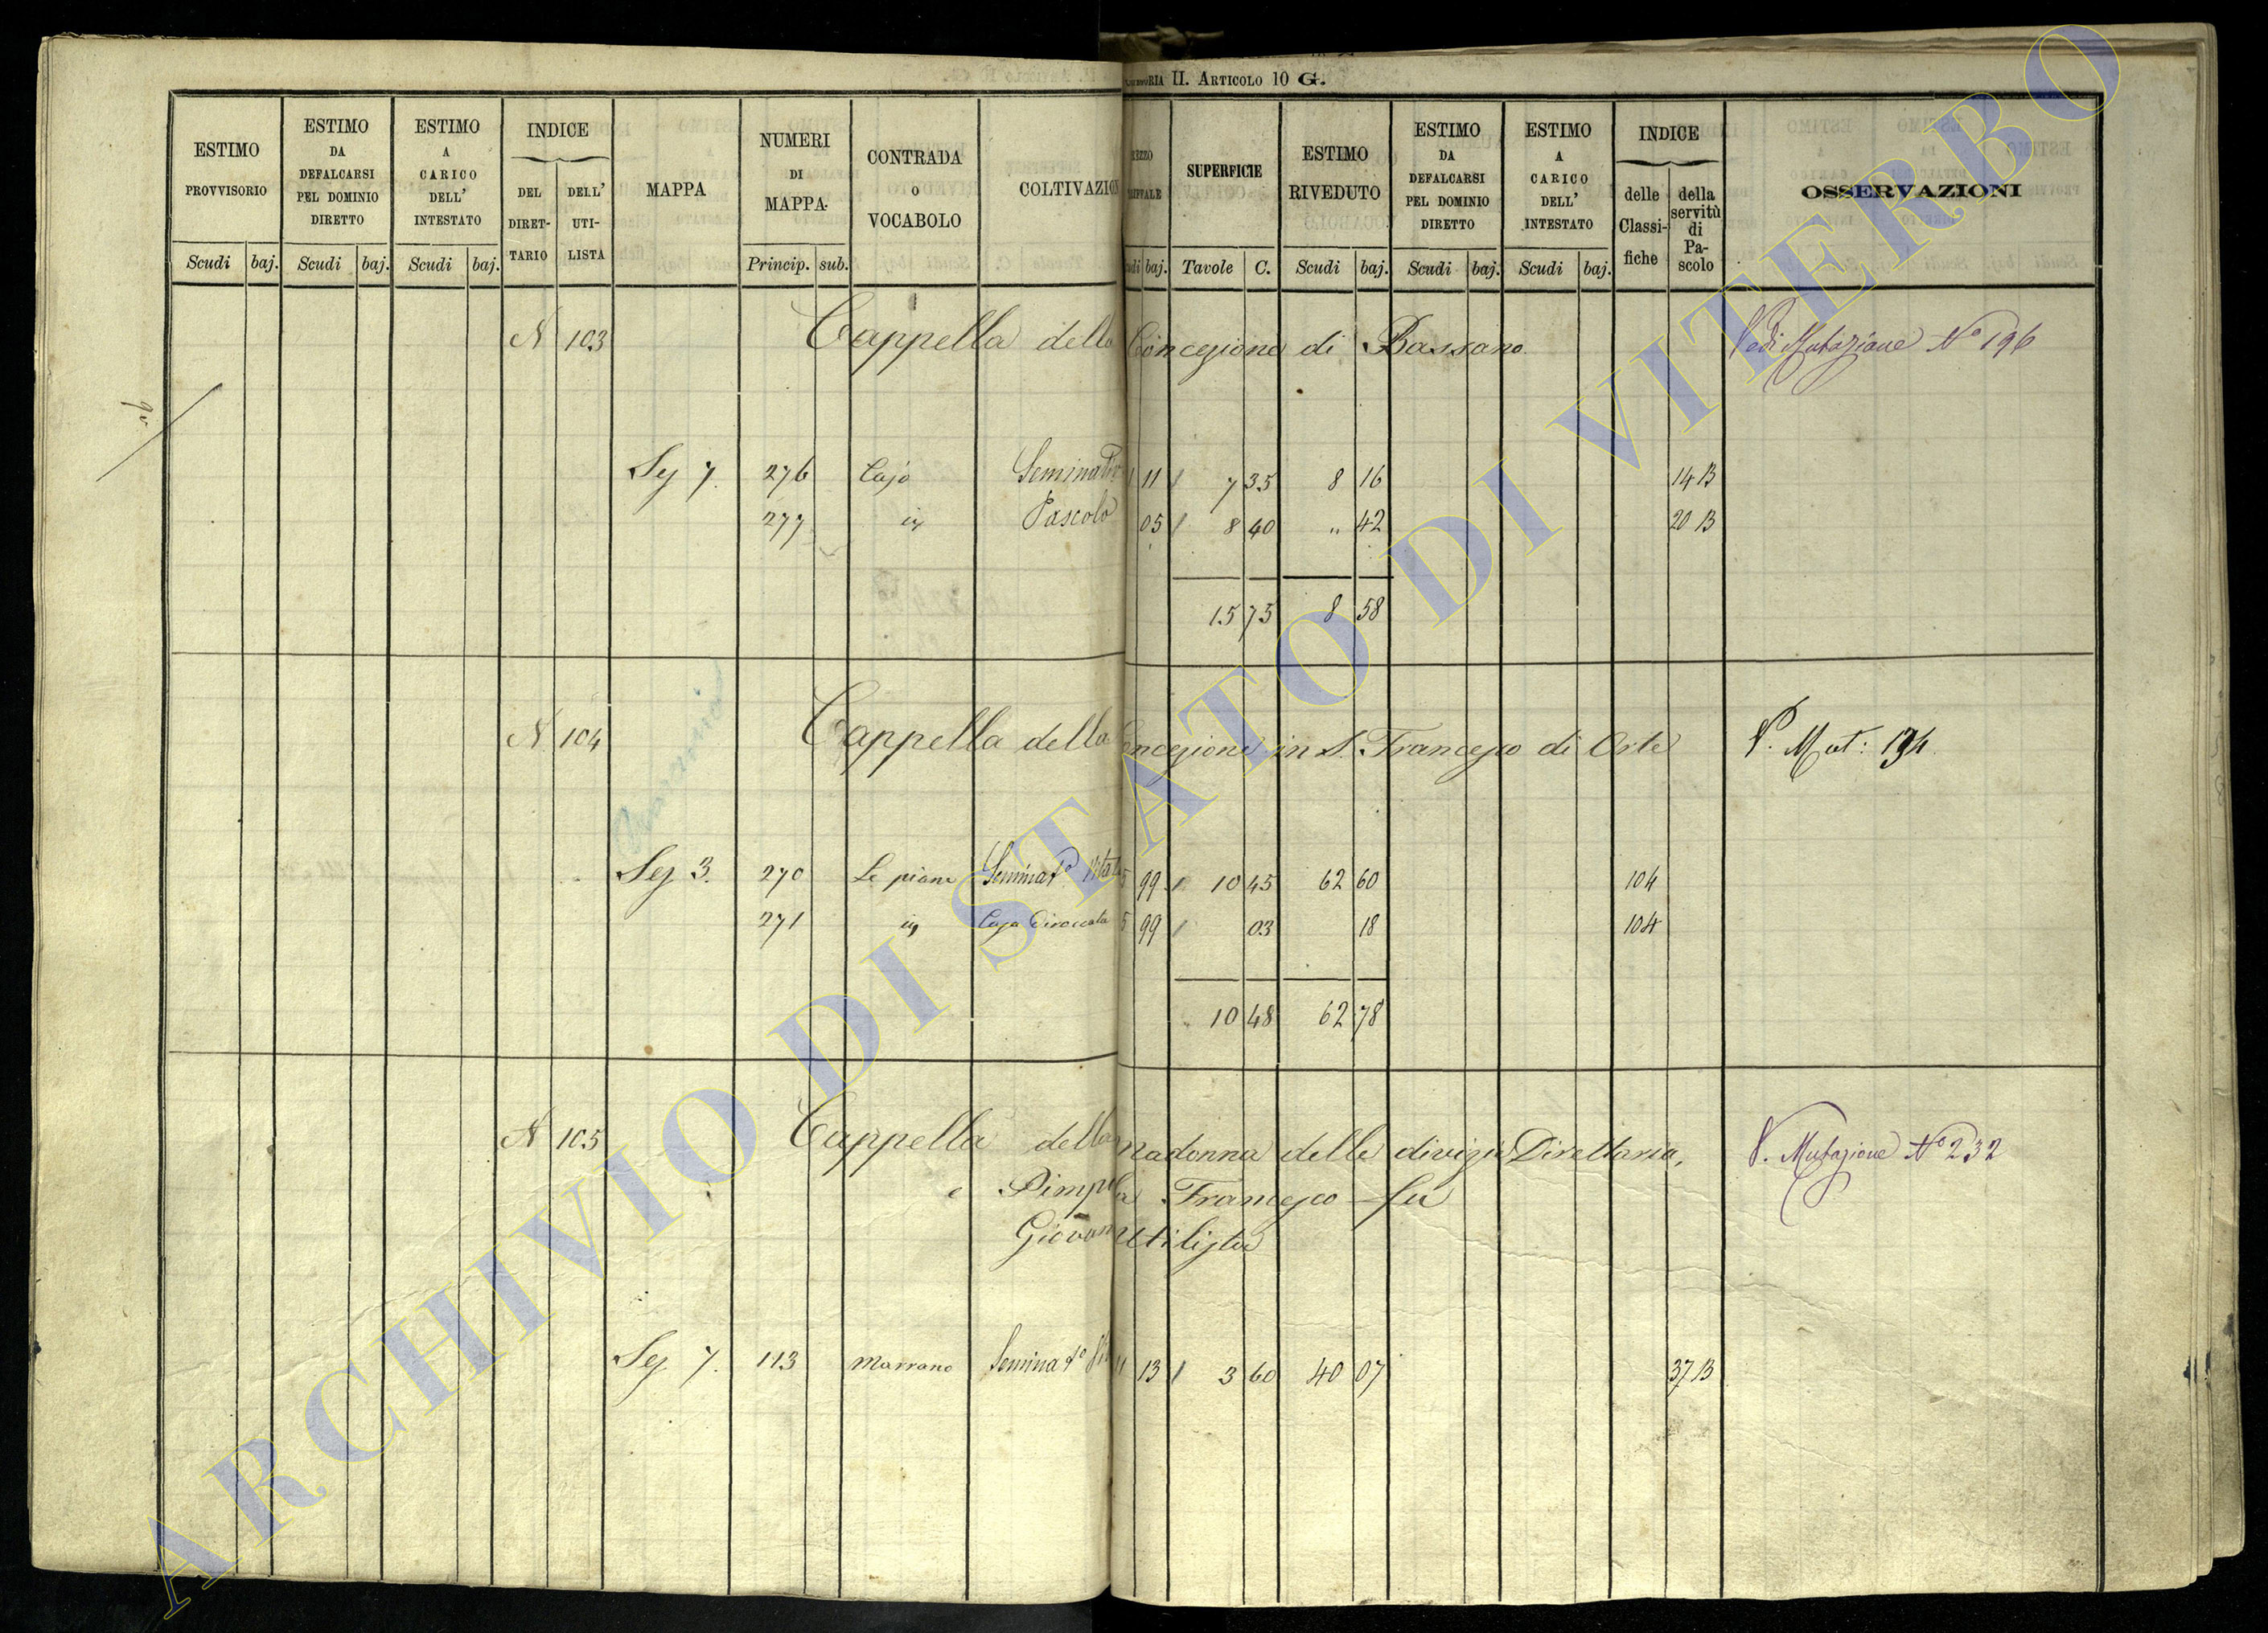 CATEGORIA II. ARTICOLO 10 G.
ESTIMO PROVVISORIO
ESTIMO DA DEFALCARSI PEL DOMINIO DIRETTO
ESTIMO A CARICO DELL' INTESTATO
INDICE
DEL DIRET-TARIO
DELL' UTI-LISTA
MAPPA
NUMERI DI MAPPA
CONTRADA o VOCABOLO
COLTIVAZION
SUPERFICIE
ESTIMO RIVEDUTO
ESTIMO DA DEFALCARSI PEL DOMINIO DIRETTO
ESTIMO A CARICO DELL' INTESTATO
INDICE
delle Classi-fiche
della servitù di Pa-scolo
OSSERVAZIONI
Scudi baj. Scudi baj. Scudi baj. Princip. sub. baj. Tavole C. Scudi baj. Scudi baj. Scudi baj.
N 103 Cappella della Concezione di Bassano Vedi Mutazione N° 196
Sez 7. 276 Seminat° 1 11 7 35 8 16 14 B
277 Pascolo 05 8 40 " 42 20 B
15 75 8 58
N 104 Cappella della Concezione in S. Francesco di Orte V. Mut: 194
Sez 3. 270 Le piane Seminat° Vitato 5 99 10 45 62 60 104
271 Casa diroccata 5 99 03 18 104
10 48 62 78
N 105 Cappella della madonna delle divizie Direttaria, V. Mutazione N° 232
e Francesco fu
Giovanni Utilista
Sez 7. 113 Marrano Seminat° Vit 11 13 3 60 40 07 37 B
ARCHIVIO DI STATO DI VITERBO